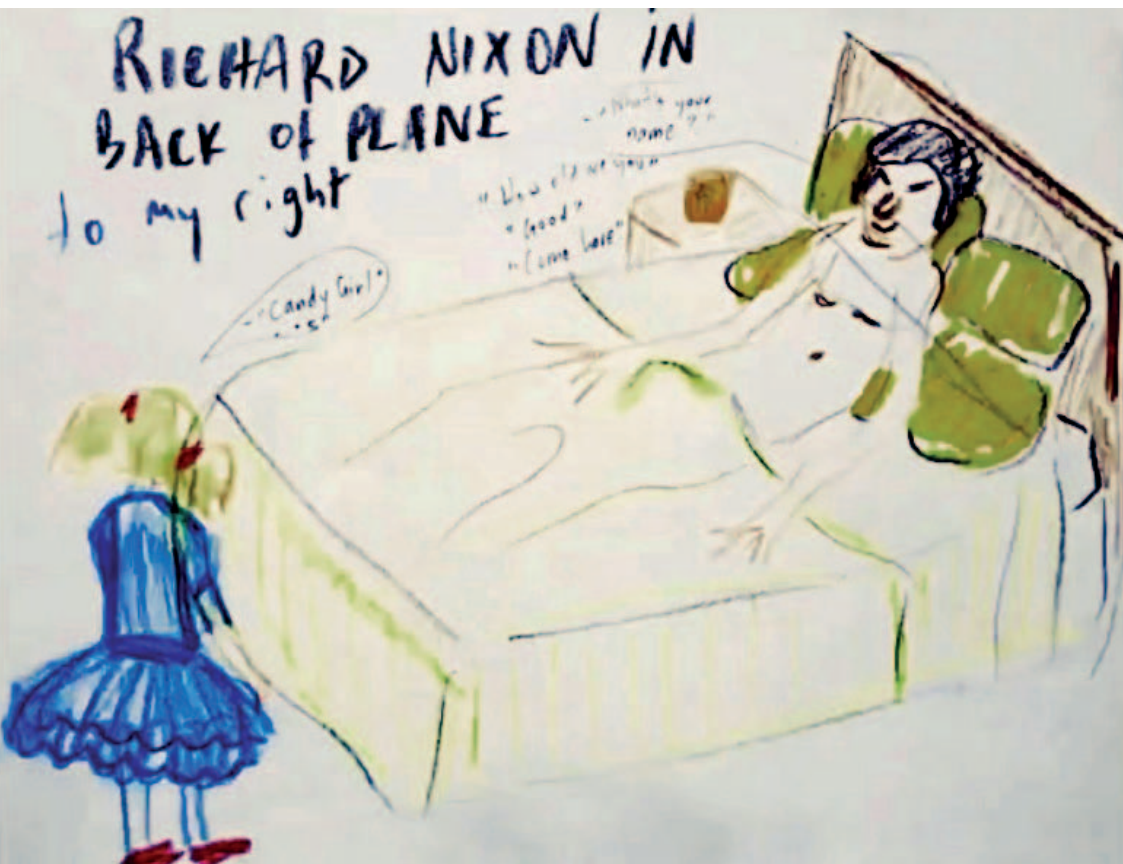 RICHARD NIXON IN
BACK of PLANE
to my right
"What's your
name?"
"How old are you"
"Good"
"Come here"
"Candy Girl"
"5"